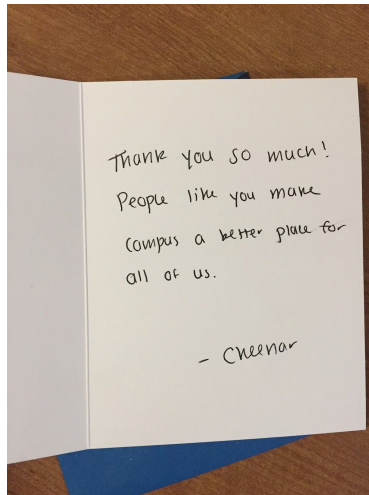 Thank you so much!
People like you make
campus a better place for
all of us.
- Cheenar